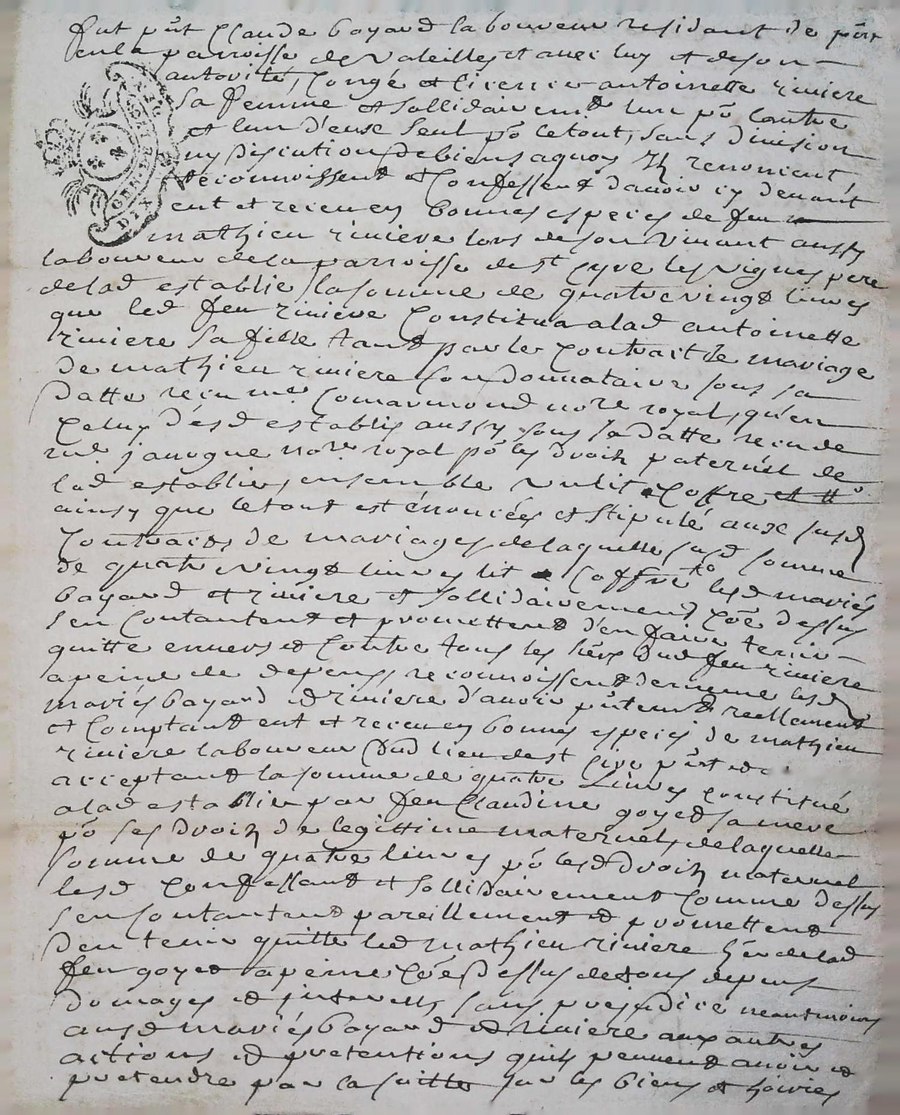 fut pñt Claude bayard laboureur residant de pñt
en la parroisse de Valeille et avec luy et de son
autorité, Congé et licence antoinette riviere
sa femme et sollidairemt lun po lautre
et lun d'eux seul po le tout, sans division
ny discution de biens a quoy Ilz renoncient
reconnoissent et Confessent d'avoir cy devant
eut et receu en bonnes especes de feu
mathieu riviere lors de son vivant aussy
laboureur de la parroisse de st Cyre les vignes pere
de lad establie, la somme de quatre vingt livres
que led feu riviere Constitua a lad antoinette
riviere sa fille tant par le Contrait de mariage
de mathieu riviere son donnataire sous sa
datte receu me Comarmond nore royal, qu'en
Celuy d'esd establis aussy sous sa datte receu de
me janogue nore royal po les droitz paternel de
lad establie, ensemble un lit Coffre
ainsy que le tout est énoncés et stipulé aux susd
Contraits de mariages, de laquelle susd somme
de quatre vingt livres lit Coffre lesd mariés
bayard et riviere et sollidairement Coe dessus
s'en Contantent et promettent d'en faire tenir
quitte envers et Contre tous les hers dud feu riviere
a peine de depens, reconnoissent de meme lesd
mariés bayard et riviere d'avoir reellement
et Comptant eut et receu en bonnes especes de mathieu
riviere laboureur dud lieu de st Cire pñt et
acceptant la somme de quatre Livres Constitué
a lad establie par feu Claudine goyet sa mere
po ses droitz de legittime maternels de laquelle
somme de quatre livres po lesd droitz maternel
lesd Confessant et sollidairement Comme dessus
s'en Contantent pareillement et promettent
d'en tenir quitte led mathieu riviere her de lad
feu goyet a peine Coe dessus de tous depens
domages et interests, sans prejudice neantmoins
ausd mariés bayard et riviere aux autres
actions et pretentions quils peuvent avoir et
pretendre par la suitte sur les biens et hoiries
GENER
DIX